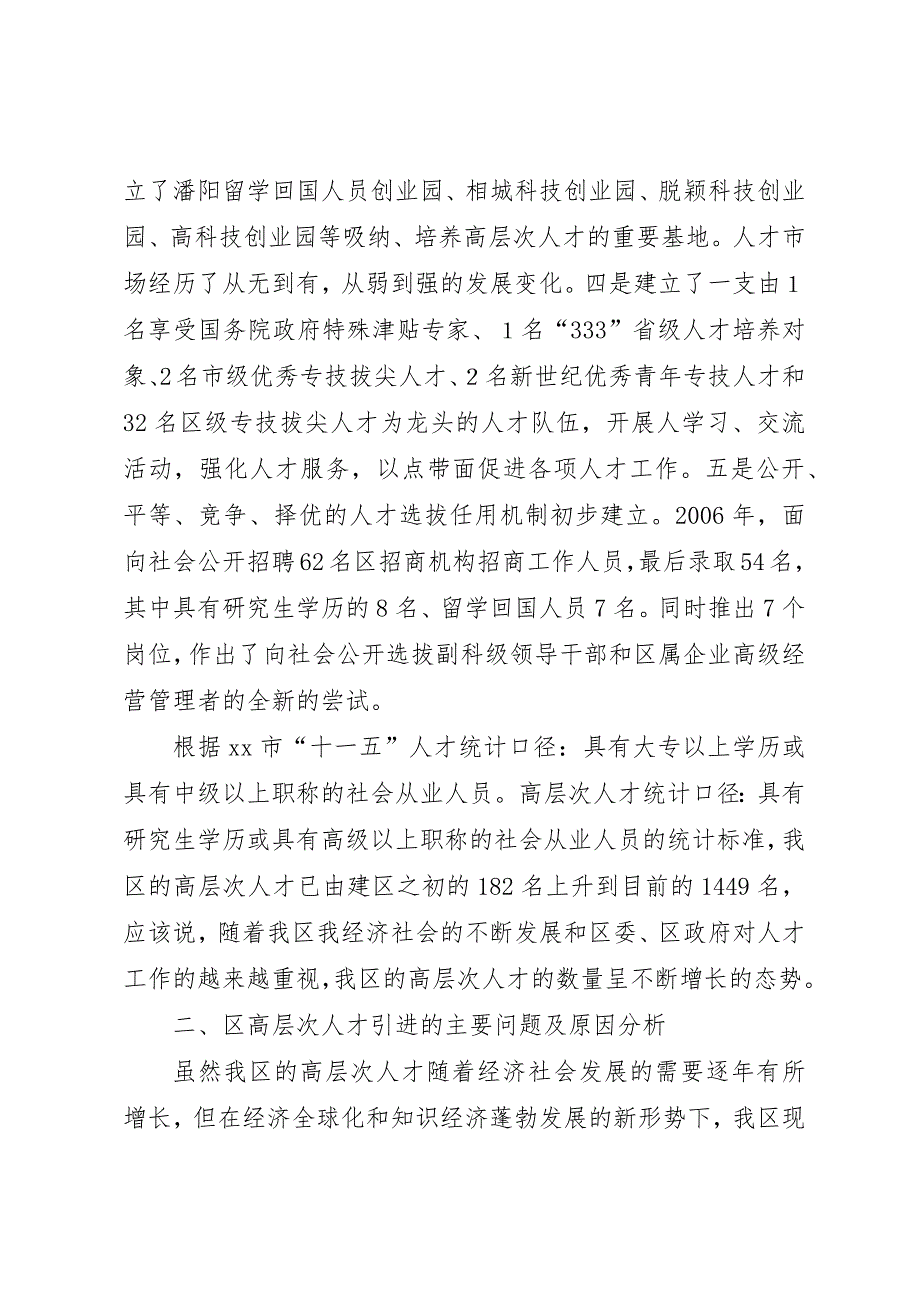 立了潘阳留学回国人员创业园、相城科技创业园、脱颖科技创业
园、高科技创业园等吸纳、培养高层次人才的重要基地。人才市
场经历了从无到有，从弱到强的发展变化。四是建立了一支由1
名享受国务院政府特殊津贴专家、1名“333”省级人才培养对
象、2名市级优秀专技拔尖人才、2名新世纪优秀青年专技人才和
32名区级专技拔尖人才为龙头的人才队伍，开展人学习、交流
活动，强化人才服务，以点带面促进各项人才工作。五是公开、
平等、竞争、择优的人才选拔任用机制初步建立。2006年，面
向社会公开招聘62名区招商机构招商工作人员，最后录取54名，
其中具有研究生学历的8名、留学回国人员7名。同时推出7个
岗位，作出了向社会公开选拔副科级领导干部和区属企业高级经
营管理者的全新的尝试。
根据xx市“十一五”人才统计口径：具有大专以上学历或
具有中级以上职称的社会从业人员。高层次人才统计口径：具有
研究生学历或具有高级以上职称的社会从业人员的统计标准，我
区的高层次人才已由建区之初的182名上升到目前的1449名，
应该说，随着我区我经济社会的不断发展和区委、区政府对人才
工作的越来越重视，我区的高层次人才的数量呈不断增长的态势。
二、区高层次人才引进的主要问题及原因分析
虽然我区的高层次人才随着经济社会发展的需要逐年有所
增长，但在经济全球化和知识经济蓬勃发展的新形势下，我区现